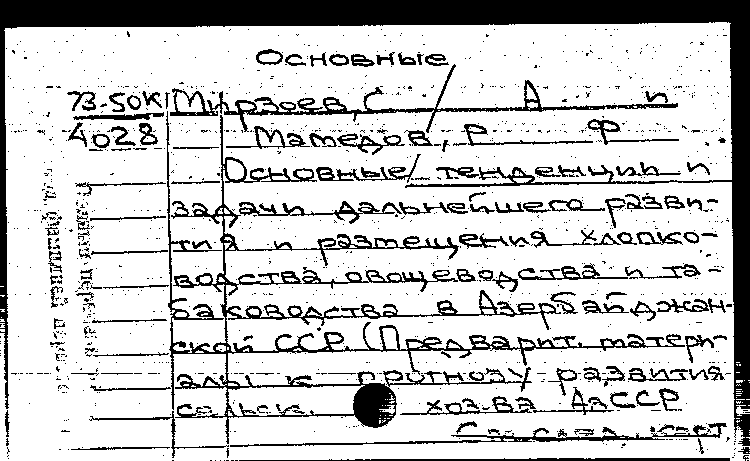 Основные
73-50К Мирзоев, С А и
4028 Мамедов, Р Ф
Основные/ тенденции и
задачи дальнейшего разви-
тия и размещения хлопко-
водства, овощеводства и та-
баководства в Азербайджан-
ской ССР. (Предварит. матери-
алы к прогнозу развития
сельск. хоз-ва АзССР
См. след. карт.